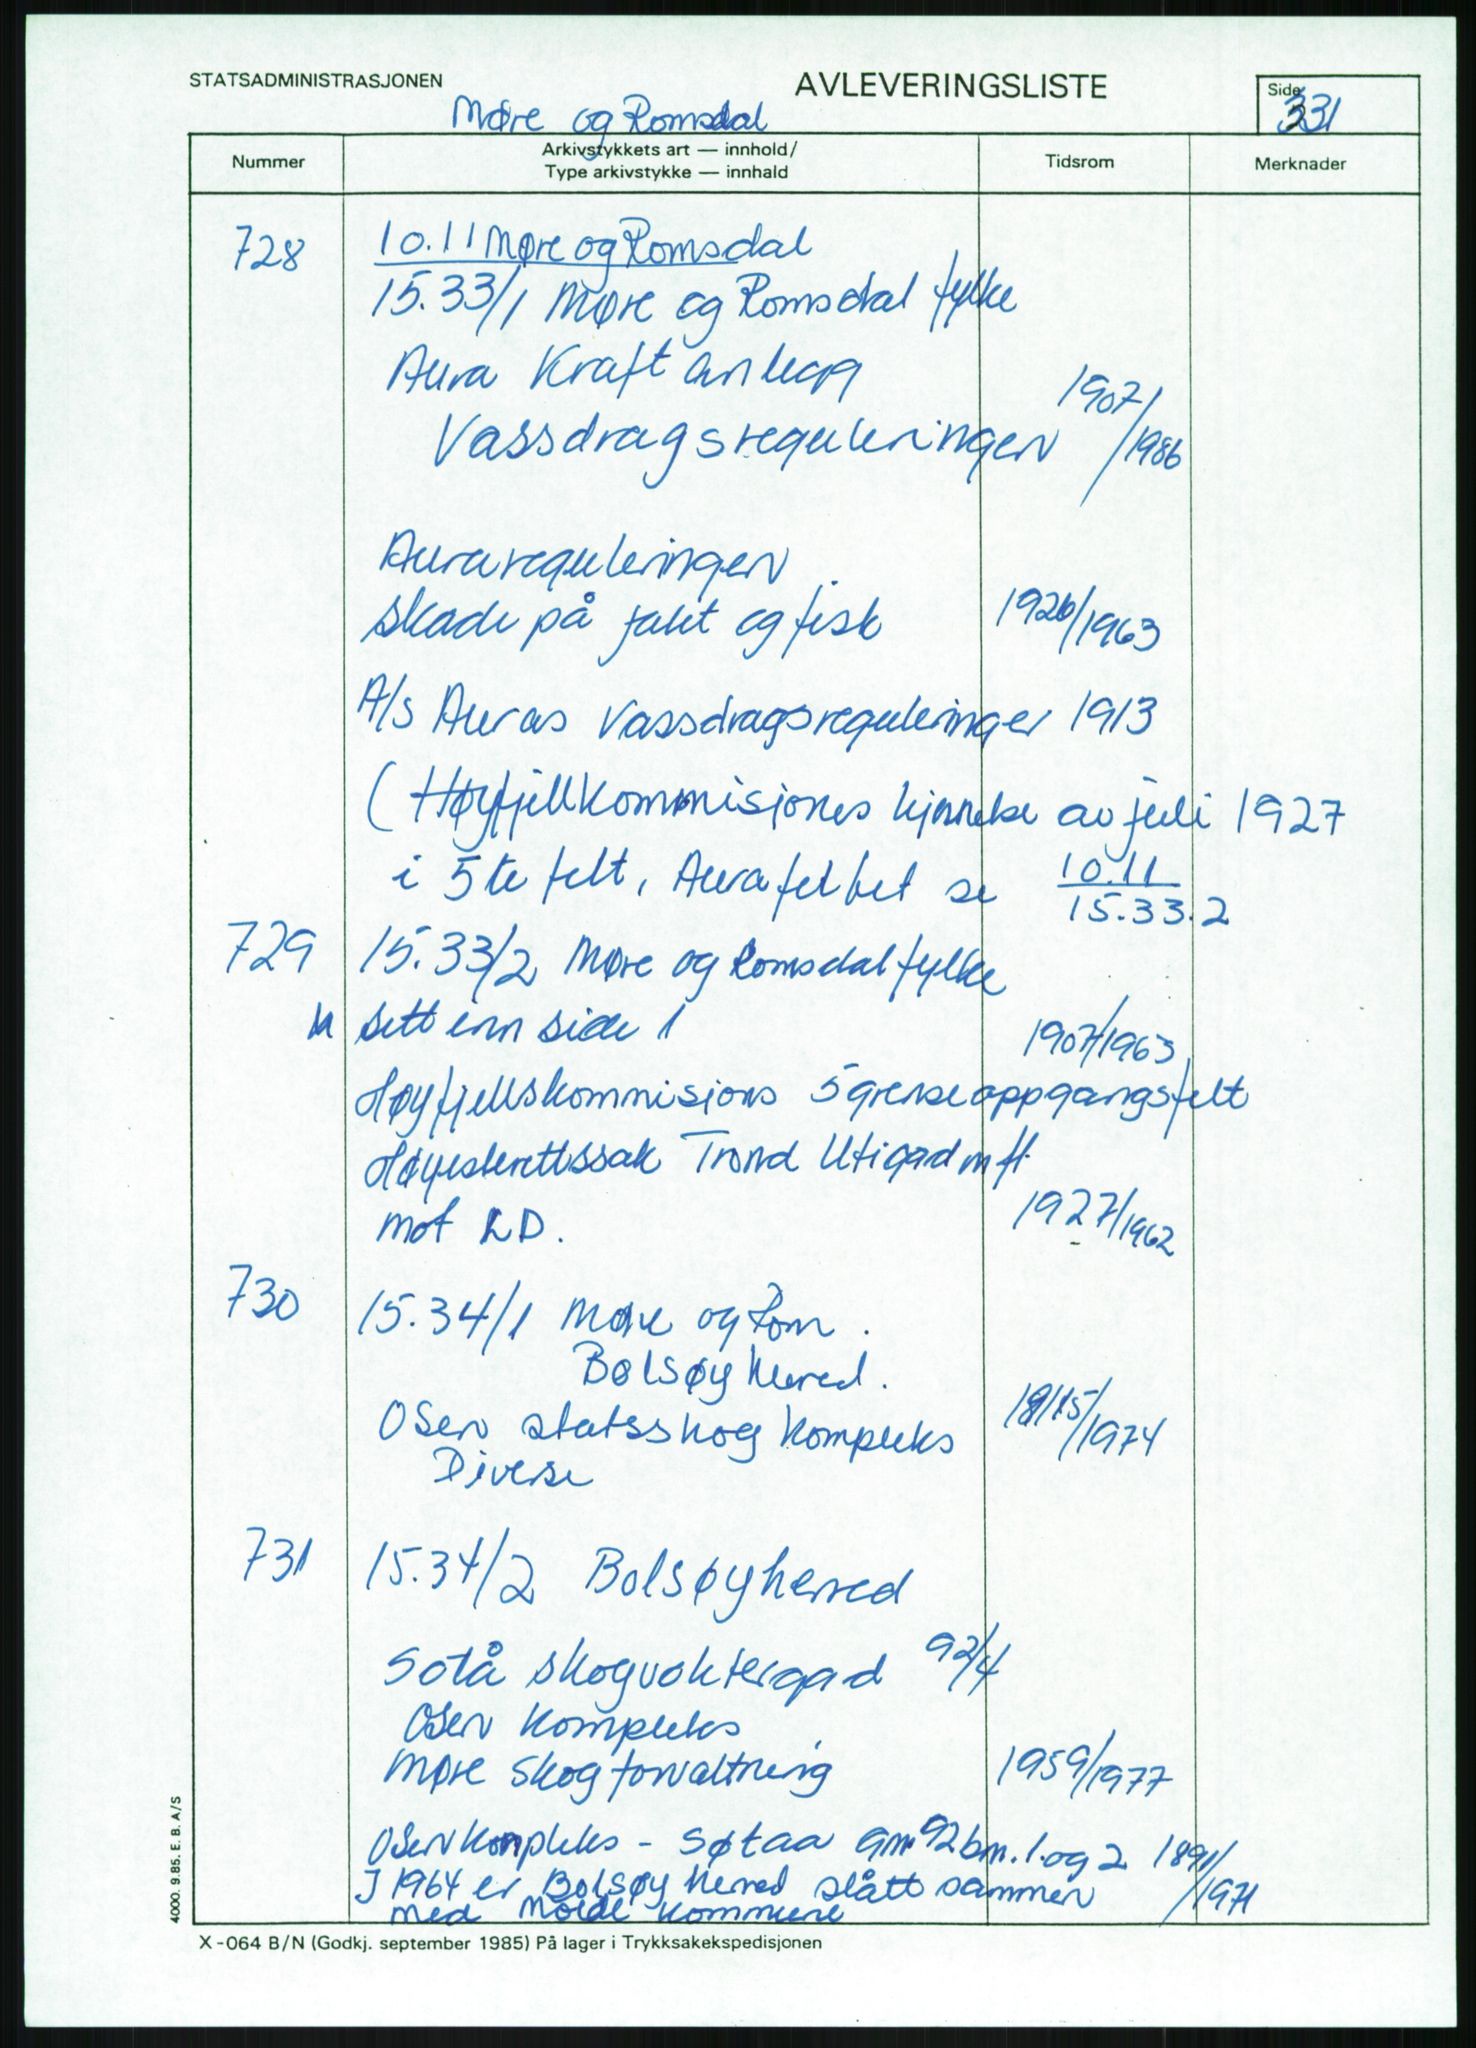 STATSADMINISTRASJONEN
AVLEVERINGSLISTE
Side
331
Møre og Romsdal
Nummer
Arkivstykkets art — innhold/
Type arkivstykke — innhald
Tidsrom
Merknader
728 10.11 Møre og Romsdal
15.33/1 Møre og Romsdal fylke
Aura Kraftanlegg
Vassdragsreguleringen 1907/1986
Aurareguleringen
skade på jakt og fisk 1926/1963
A/s Auras Vassdragsreguleringer 1913
(Høyfjellkommisjones kjennelse av juli 1927
i 5te felt, Aurafeltet se 10.11
15.33.2
729 15.33/2 Møre og Romsdal fylke
sett inn side 1 1907/1963
Høyfjellskommisjons 5 grenseoppgangsfelt
Høyesterettssak Trond Utigard m fl.
mot LD. 1927/1962
730 15.34/1 Møre og Rom.
Bolsøy herred.
Osen statsskog kompleks /1974
Diverse
731 15.34/2 Bolsøy herred
Sotå skogvoktergard 92/4
Osen kompleks
Møre skogforvaltning 1959/1977
Osen kompleks - Søtaa gnr 92 bnr. 1. og 2 1891/1971
I 1964 er Bolsøy herred slått sammen
med Molde kommune
4000. 9.85. E. B. A/S
X-064 B/N (Godkj. september 1985) På lager i Trykksakekspedisjonen